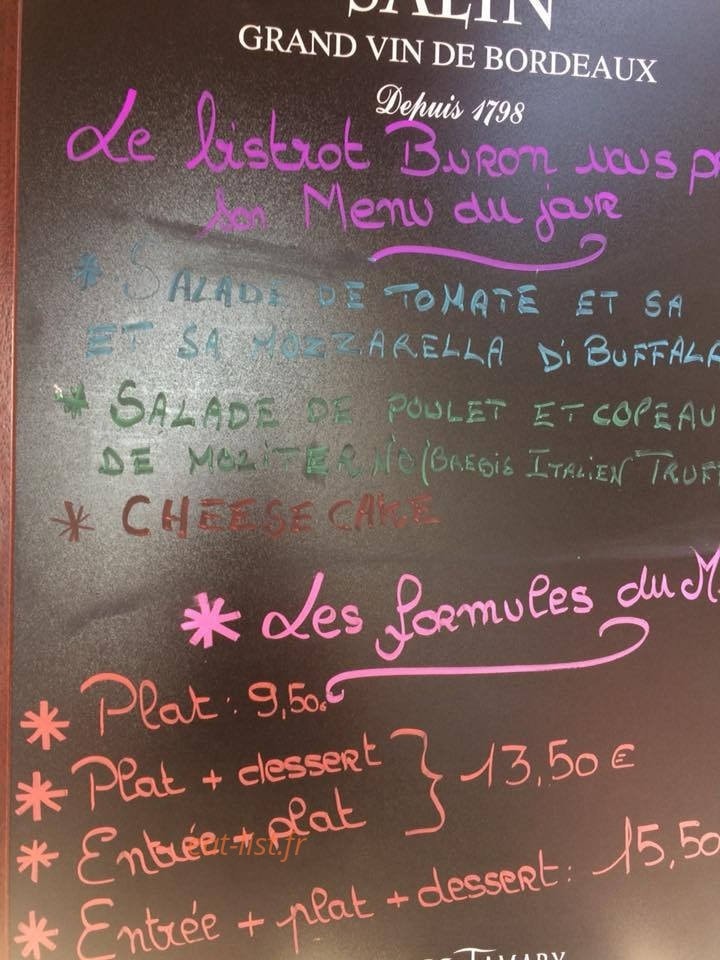 SALIN
GRAND VIN DE BORDEAUX
Depuis 1798
Le bistrot Buron vous p
son Menu du jour
* SALADE DE TOMATE ET SA
ET SA MOZZARELLA Di BUFFALA
* SALADE DE POULET ET COPEAU
DE MOLITERNO (BREBIS ITALIEN TRUF
* CHEESE CAKE
* Les formules du M
* Plat : 9,50€
* Plat + dessert
* Entrée + plat } 13,50 €
eat-list.fr
* Entrée + plat + dessert : 15,50
TAMARY